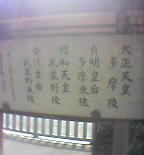 大正天皇
多摩陵
貞明皇后
多摩東陵
昭和天皇
武蔵野陵
香淳皇后
武蔵野東陵